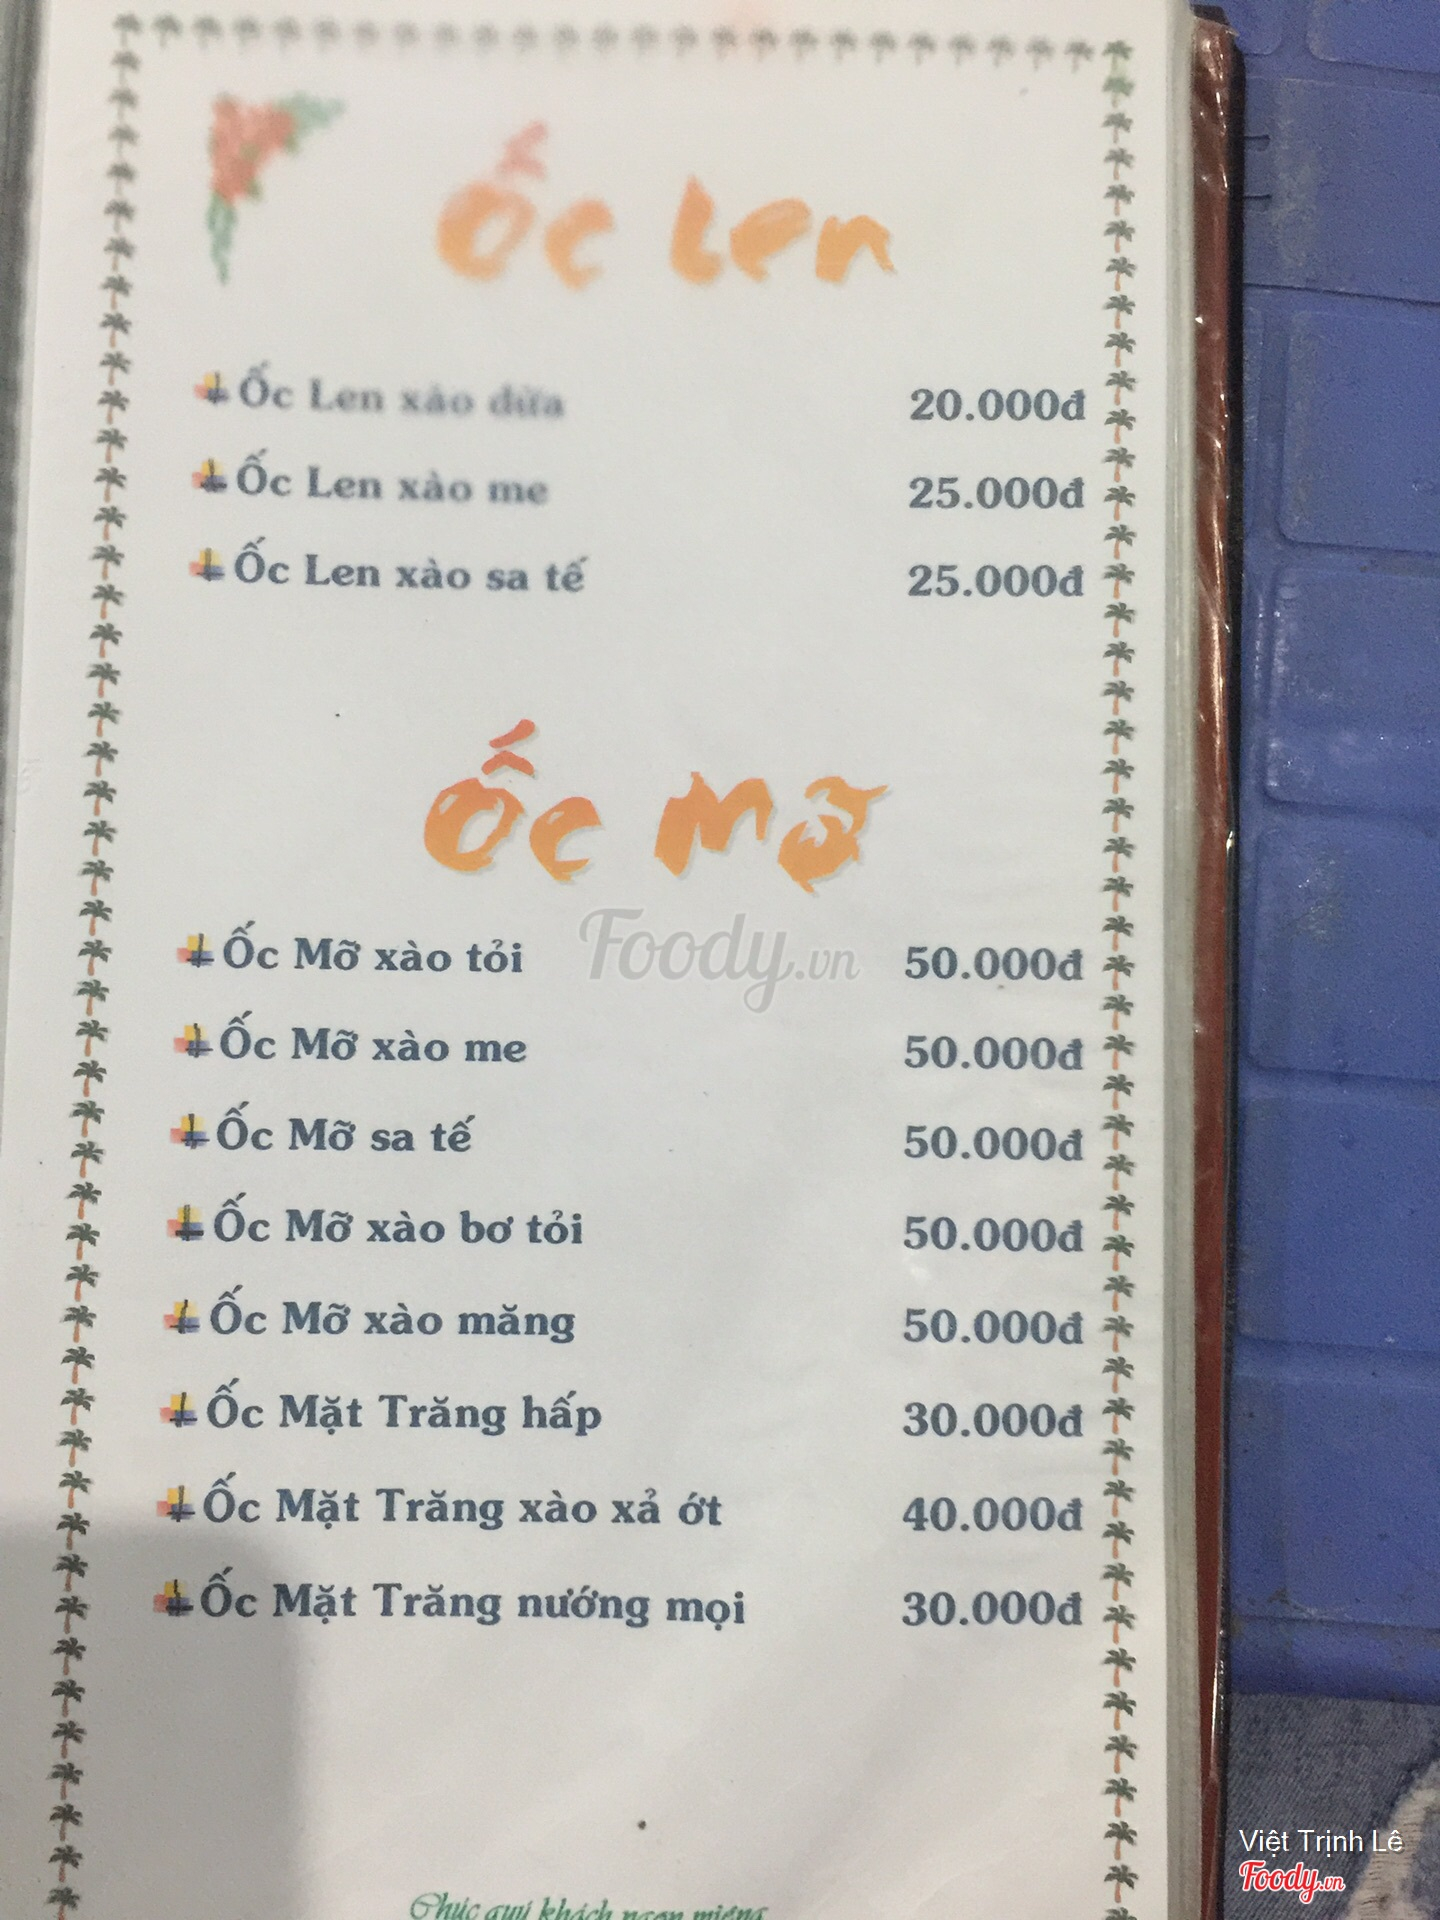 Ốc Len
Ốc Len xào dừa 20.000đ
Ốc Len xào me 25.000đ
Ốc Len xào sa tế 25.000đ
Ốc Mỡ
Ốc Mỡ xào tỏi 50.000đ
Foody.vn
Ốc Mỡ xào me 50.000đ
Ốc Mỡ sa tế 50.000đ
Ốc Mỡ xào bơ tỏi 50.000đ
Ốc Mỡ xào măng 50.000đ
Ốc Mặt Trăng hấp 30.000đ
Ốc Mặt Trăng xào xả ớt 40.000đ
Ốc Mặt Trăng nướng mọi 30.000đ
Chúc quý khách ngon miệng
Việt Trịnh Lê
Foody.vn